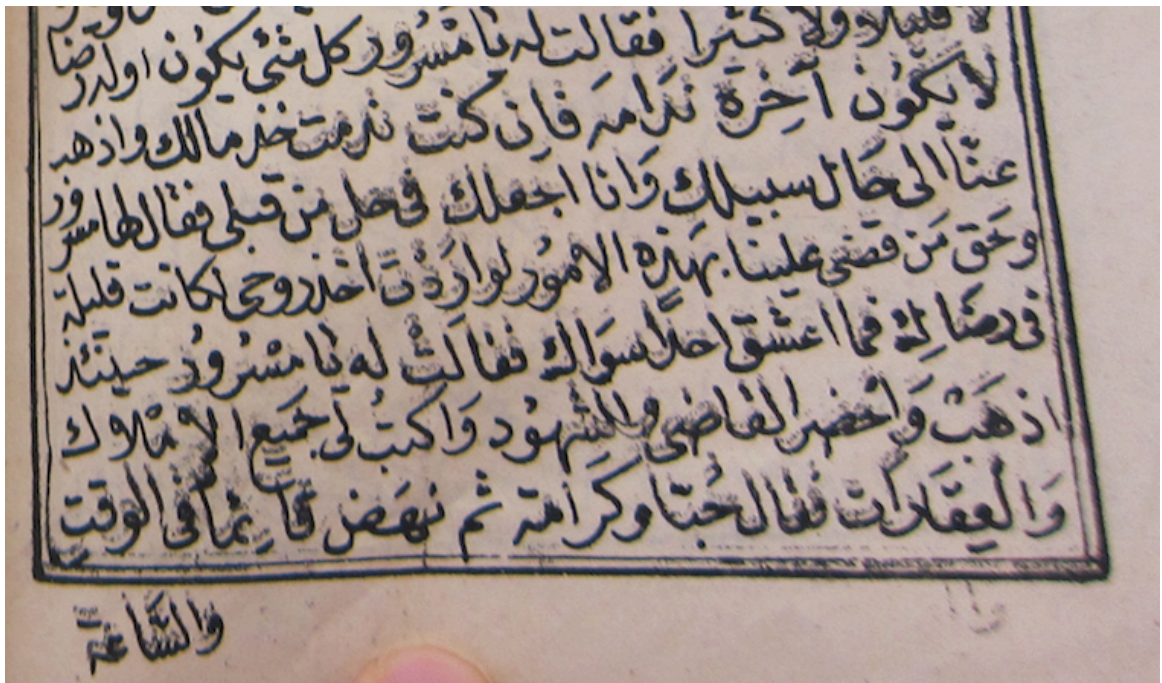 لا قليلا ولا كثيرا فقالت له يا مسرور كل شئ يكون اوله رضا
لا يكون آخرة ندامه فان كنت ندمت خذ مالك واذهب
عنّا الى حَال سبيلك وَانا اجعلك فى حل من قبلى فقال لها مسرور
وحَق مَن قضى علينا بهَذِه الامُور لو ارَدْتَ اخذ روحى لكانت قليلة
فى رضَا لِك فما اعشق احدًا سوَاك فقالتْ له يَا مَسْرُورُ حينئذ
اذهَبْ وَاحْضر القاضى والشهُود وَاكتبُ لى جَميع الاملاوك
وَالعِقارَات فقال حُبّا وكَرَامة ثم نهَض قَائِمًا فى الوقتِ
وَالسَّاعَة